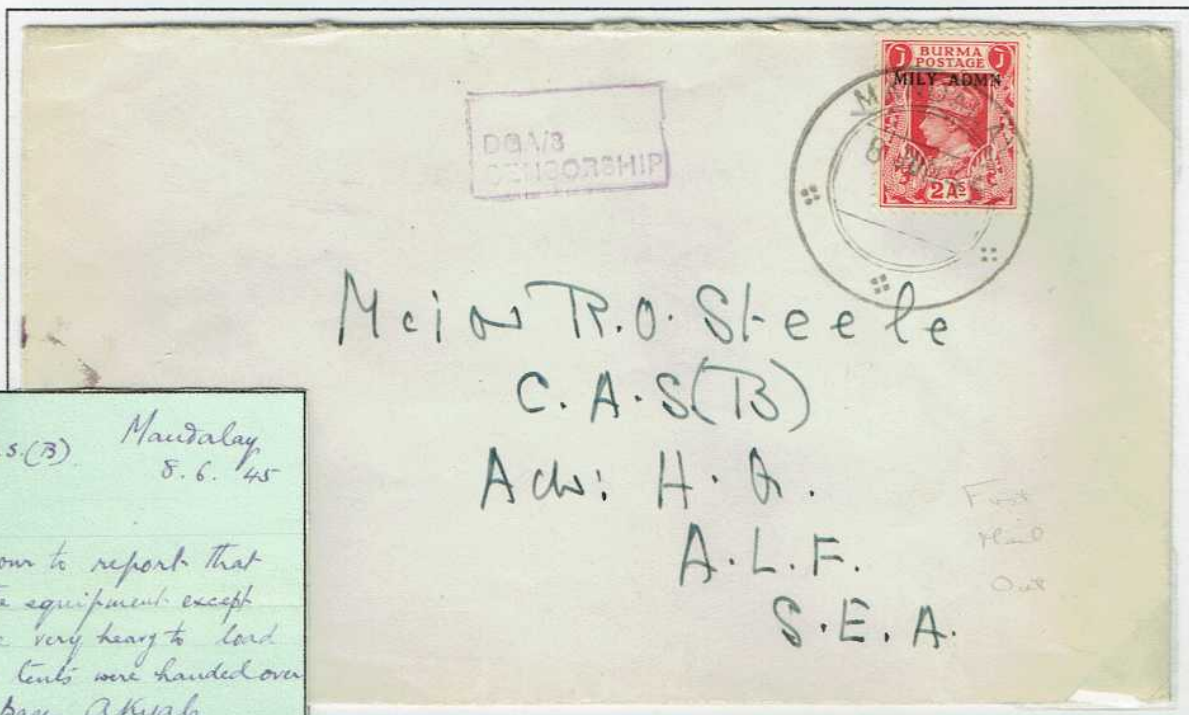 BURMA
POSTAGE
MILY ADMN
2 As
8
DGA/3
CENSORSHIP
R.O. Steele
C.A.S(B)
H.
A.L.F.
S.E.A.
First
Mail
Out
S.(B) Mandalay
8.6.45
to report that
equipment except
very heavy to load
tents were handed over
Akyab